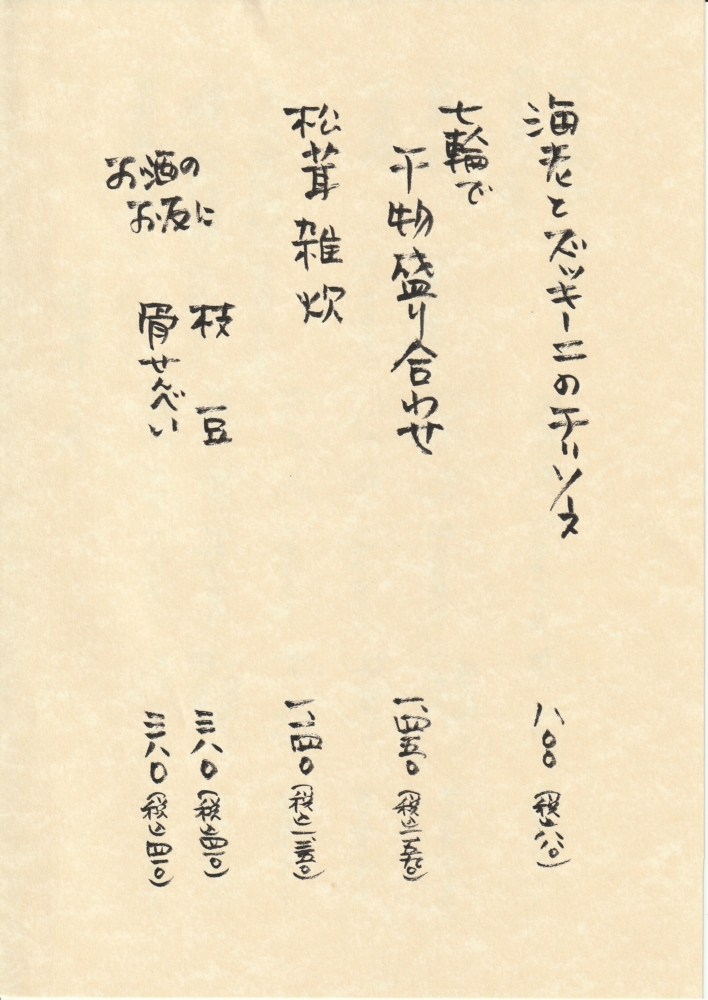 海老とズッキーニのチリソース 八〇〇（税込八八〇）
七輪で
干物盛り合わせ 一、四五〇（税込一、五九〇）
松茸雑炊
お酒の
お友に
枝豆 三八〇（税込四一〇）
骨せんべい 三八〇（税込四一〇）